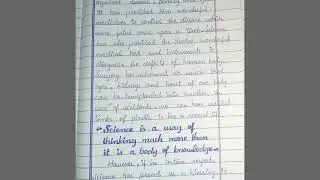 against disease, poverty and
It has provided him wonderful
medicines to control the disease which
were fatal once upon a time. Science
has also provided the doctor wonderful
medical test and instruments to
diagnose the defects of human body.
Surgery has advanced so much that
eyes, kidney and heart of one body
can be transplanted into another. In
case of accidents, we can have artificial
limbs of plastic to live a normal life.
"Science is a way of
thinking much more than
it is a body of knowledge."
However, if in certain respect
science has proved as a blessing, it